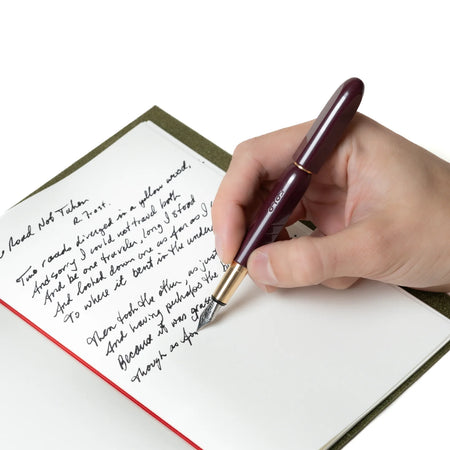 Road Not Taken
R. Frost.
Two roads diverged in a yellow wood,
And sorry I could not travel both
And be one traveler, long I stood
And looked down one as far as I
To where it bent in the under
Then took the other, as just
And having perhaps the
Because it was grass
Though as for